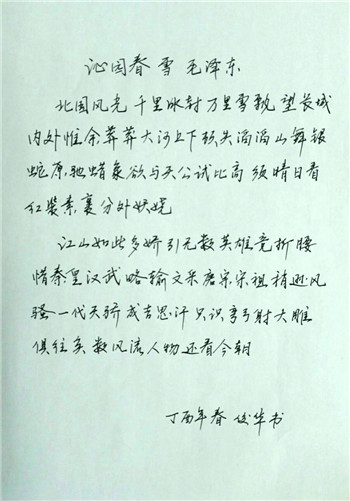 沁园春 雪 毛泽东
北国风光 千里冰封 万里雪飘 望长城
内外惟余莽莽大河上下顿失滔滔山舞银
蛇原驰蜡象欲与天公试比高 须晴日看
红装素裹分外妖娆
江山如此多娇引无数英雄竞折腰
惜秦皇汉武略输文采唐宗宋祖稍逊风
骚一代天骄成吉思汗只识弯弓射大雕
俱往矣数风流人物还看今朝
丁酉年春 俊华书